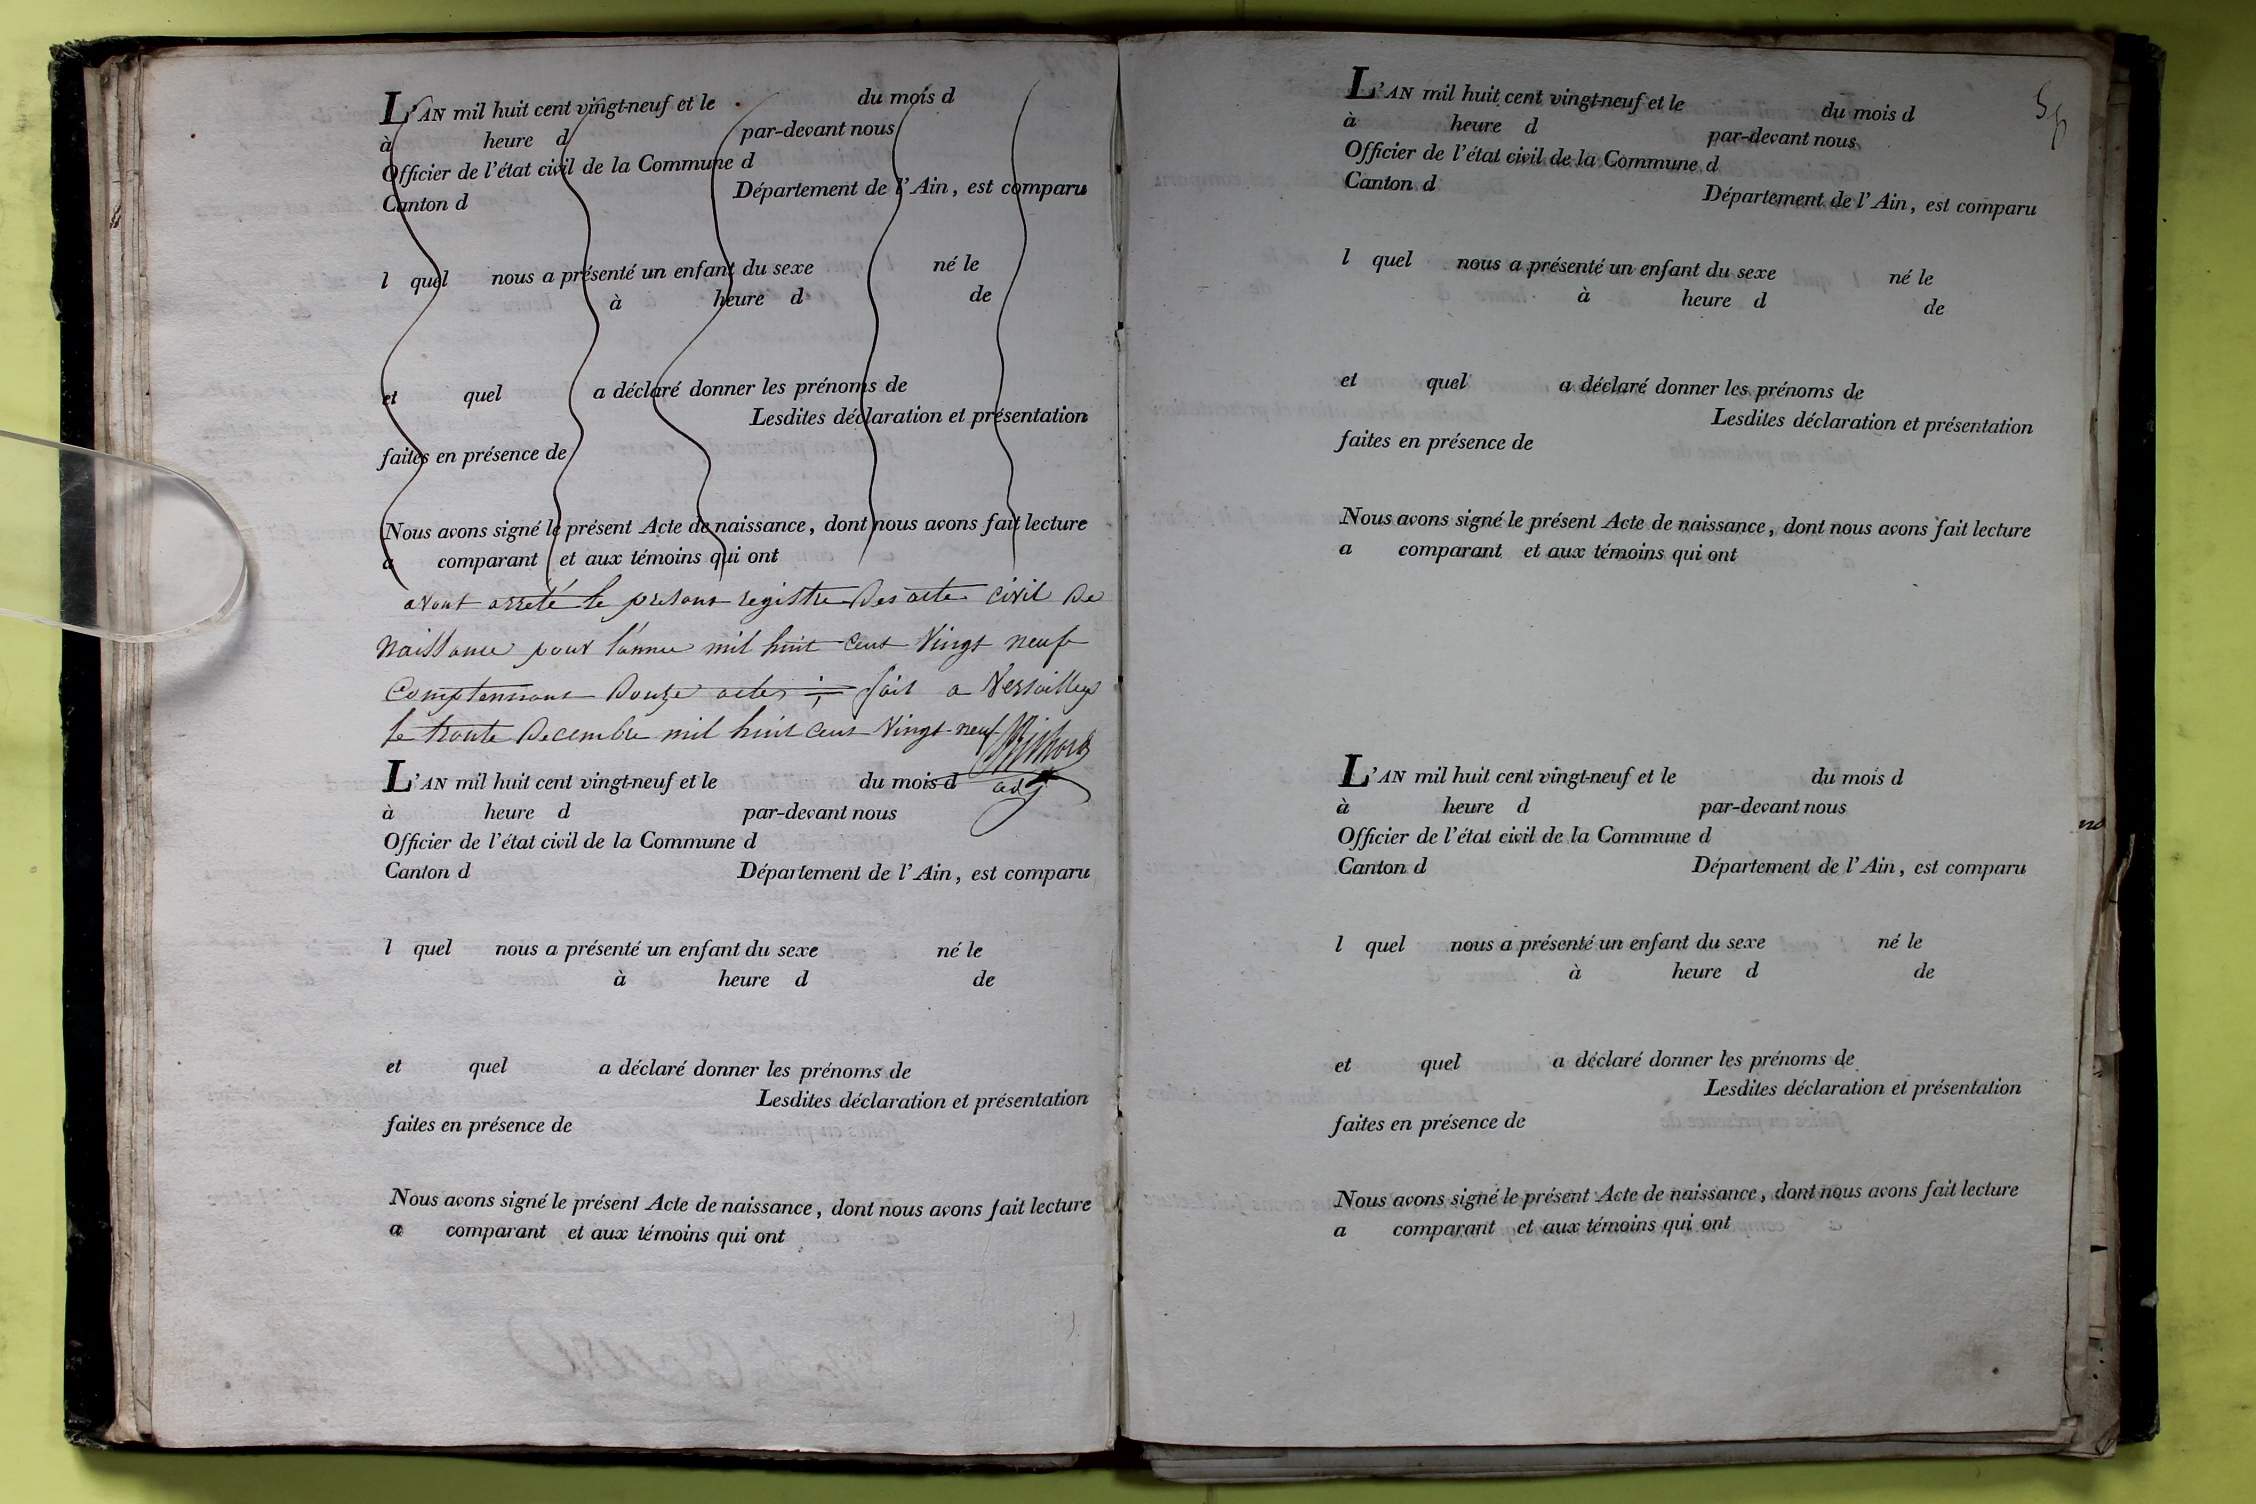 L'AN mil huit cent vingt-neuf et le du mois d
à heure d par-devant nous
Officier de l'état civil de la Commune d
Canton d Département de l'Ain, est comparu
l quel nous a présenté un enfant du sexe né le
à heure d de
et quel a déclaré donner les prénoms de
Lesdites déclaration et présentation
faites en présence de
Nous avons signé le présent Acte de naissance, dont nous avons fait lecture
a comparant et aux témoins qui ont
avont arreté le presant registre Des acte civil De
Naissance pour l'annee mil huit cent Vingt neuf
Comptennant Douze actes fait a Versailleux
le trante Decembre mil huit cent Vingt neuf
adj
L'AN mil huit cent vingt-neuf et le du mois d
à heure d par-devant nous
Officier de l'état civil de la Commune d
Canton d Département de l'Ain, est comparu
l quel nous a présenté un enfant du sexe né le
à heure d de
et quel a déclaré donner les prénoms de
Lesdites déclaration et présentation
faites en présence de
Nous avons signé le présent Acte de naissance, dont nous avons fait lecture
a comparant et aux témoins qui ont
L'AN mil huit cent vingt-neuf et le du mois d
à heure d par-devant nous
Officier de l'état civil de la Commune d
Canton d Département de l'Ain, est comparu
l quel nous a présenté un enfant du sexe né le
à heure d de
et quel a déclaré donner les prénoms de
Lesdites déclaration et présentation
faites en présence de
Nous avons signé le présent Acte de naissance, dont nous avons fait lecture
a comparant et aux témoins qui ont
L'AN mil huit cent vingt-neuf et le du mois d
à heure d par-devant nous
Officier de l'état civil de la Commune d
Canton d Département de l'Ain, est comparu
l quel nous a présenté un enfant du sexe né le
à heure d de
et quel a déclaré donner les prénoms de
Lesdites déclaration et présentation
faites en présence de
Nous avons signé le présent Acte de naissance, dont nous avons fait lecture
a comparant et aux témoins qui ont